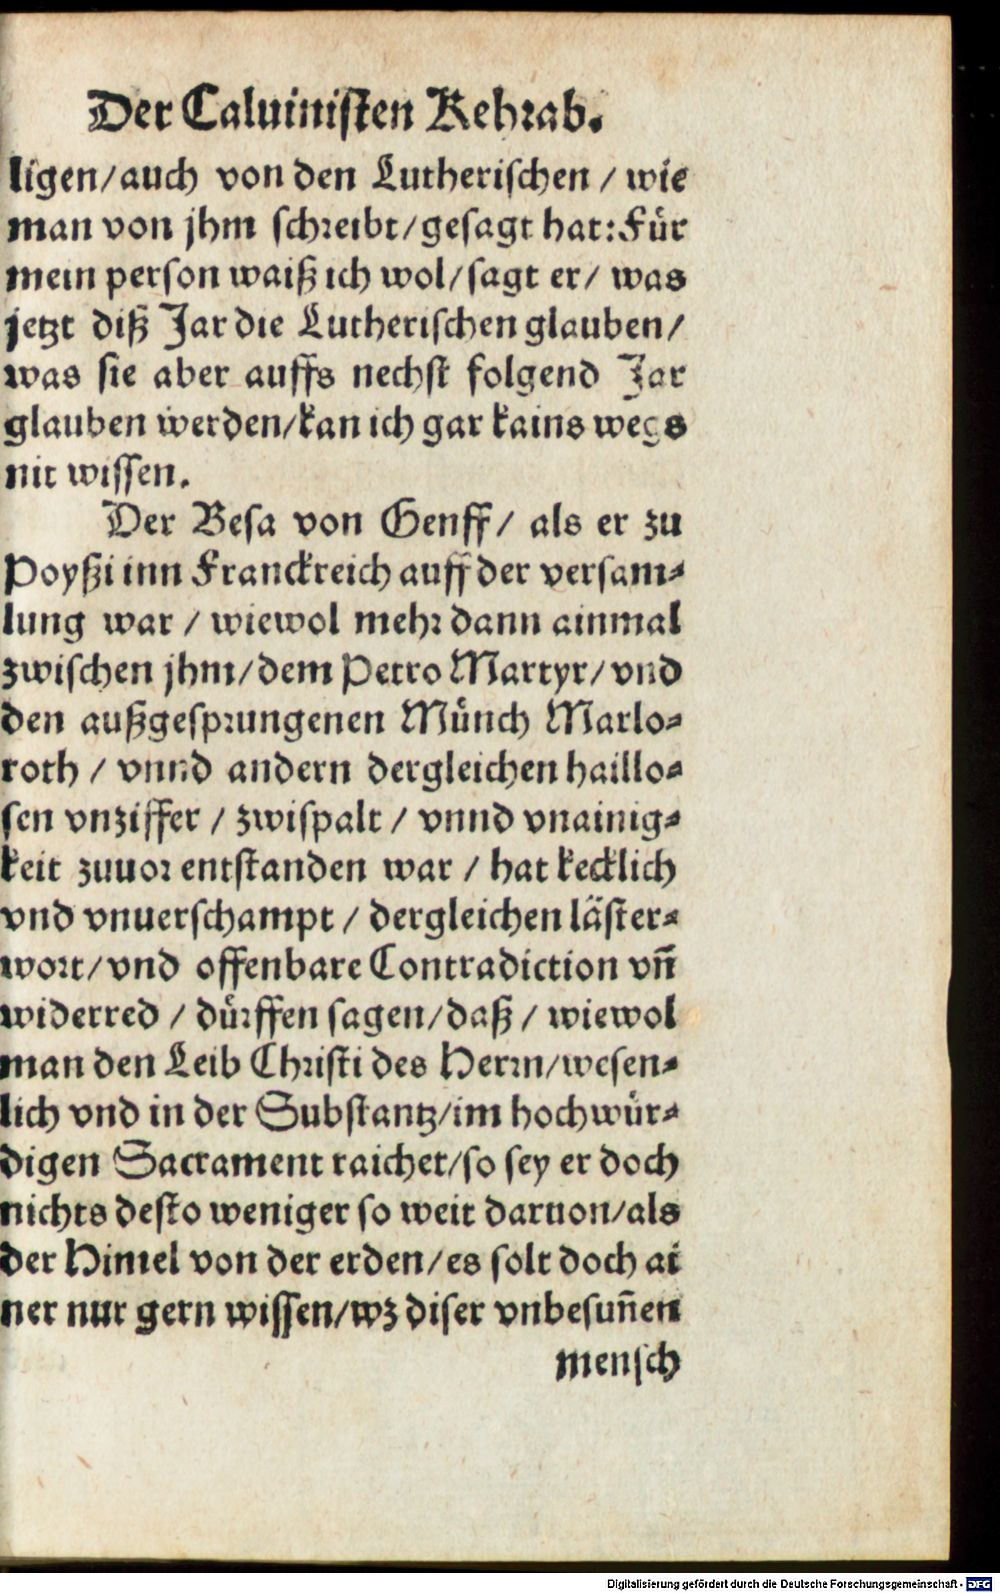 Der Caluinisten Kehrab.
ligen/auch von den Lutherischen / wie
man von jhm schreibt/gesagt hat: Für
mein person waiß ich wol/sagt er/ was
jetzt diß Jar die Lutherischen glauben/
was sie aber auffs nechst folgend Jar
glauben werden/kan ich gar kains wegs
nit wissen.
Der Besa von Genff/ als er zu
Poyßi inn Franckreich auff der versam-
lung war / wiewol mehr dann ainmal
zwischen jhm/dem Petro Martyr/ vnd
den außgesprungenen Münch Marlo-
roth / vnnd andern dergleichen haillo-
sen vnziffer / zwispalt / vnnd vnainig-
keit zuuor entstanden war / hat kecklich
vnd vnuerschampt / dergleichen läster-
wort/vnd offenbare Contradiction vñ
widerred / dürffen sagen/daß / wiewol
man den Leib Christi des Herrn/wesen-
lich vnd in der Substantz/im hochwür-
digen Sacrament raichet/so sey er doch
nichts desto weniger so weit daruon/als
der Himel von der erden/es solt doch ai
ner nur gern wissen/wz diser vnbesuñen
mensch
Digitalisierung gefördert durch die Deutsche Forschungsgemeinschaft - DFG